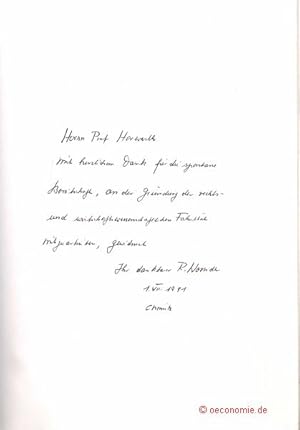 Herrn Prof
mit herzlichem Dank für die spontane
Bereitschaft, an der Gründung der rechts-
und wirtschaftswissenschaftlichen Fakultät
mitzuarbeiten, gewidmet
Ihr dankbarer P.
1.VII.1991
Chemnitz
© oeconomie.de